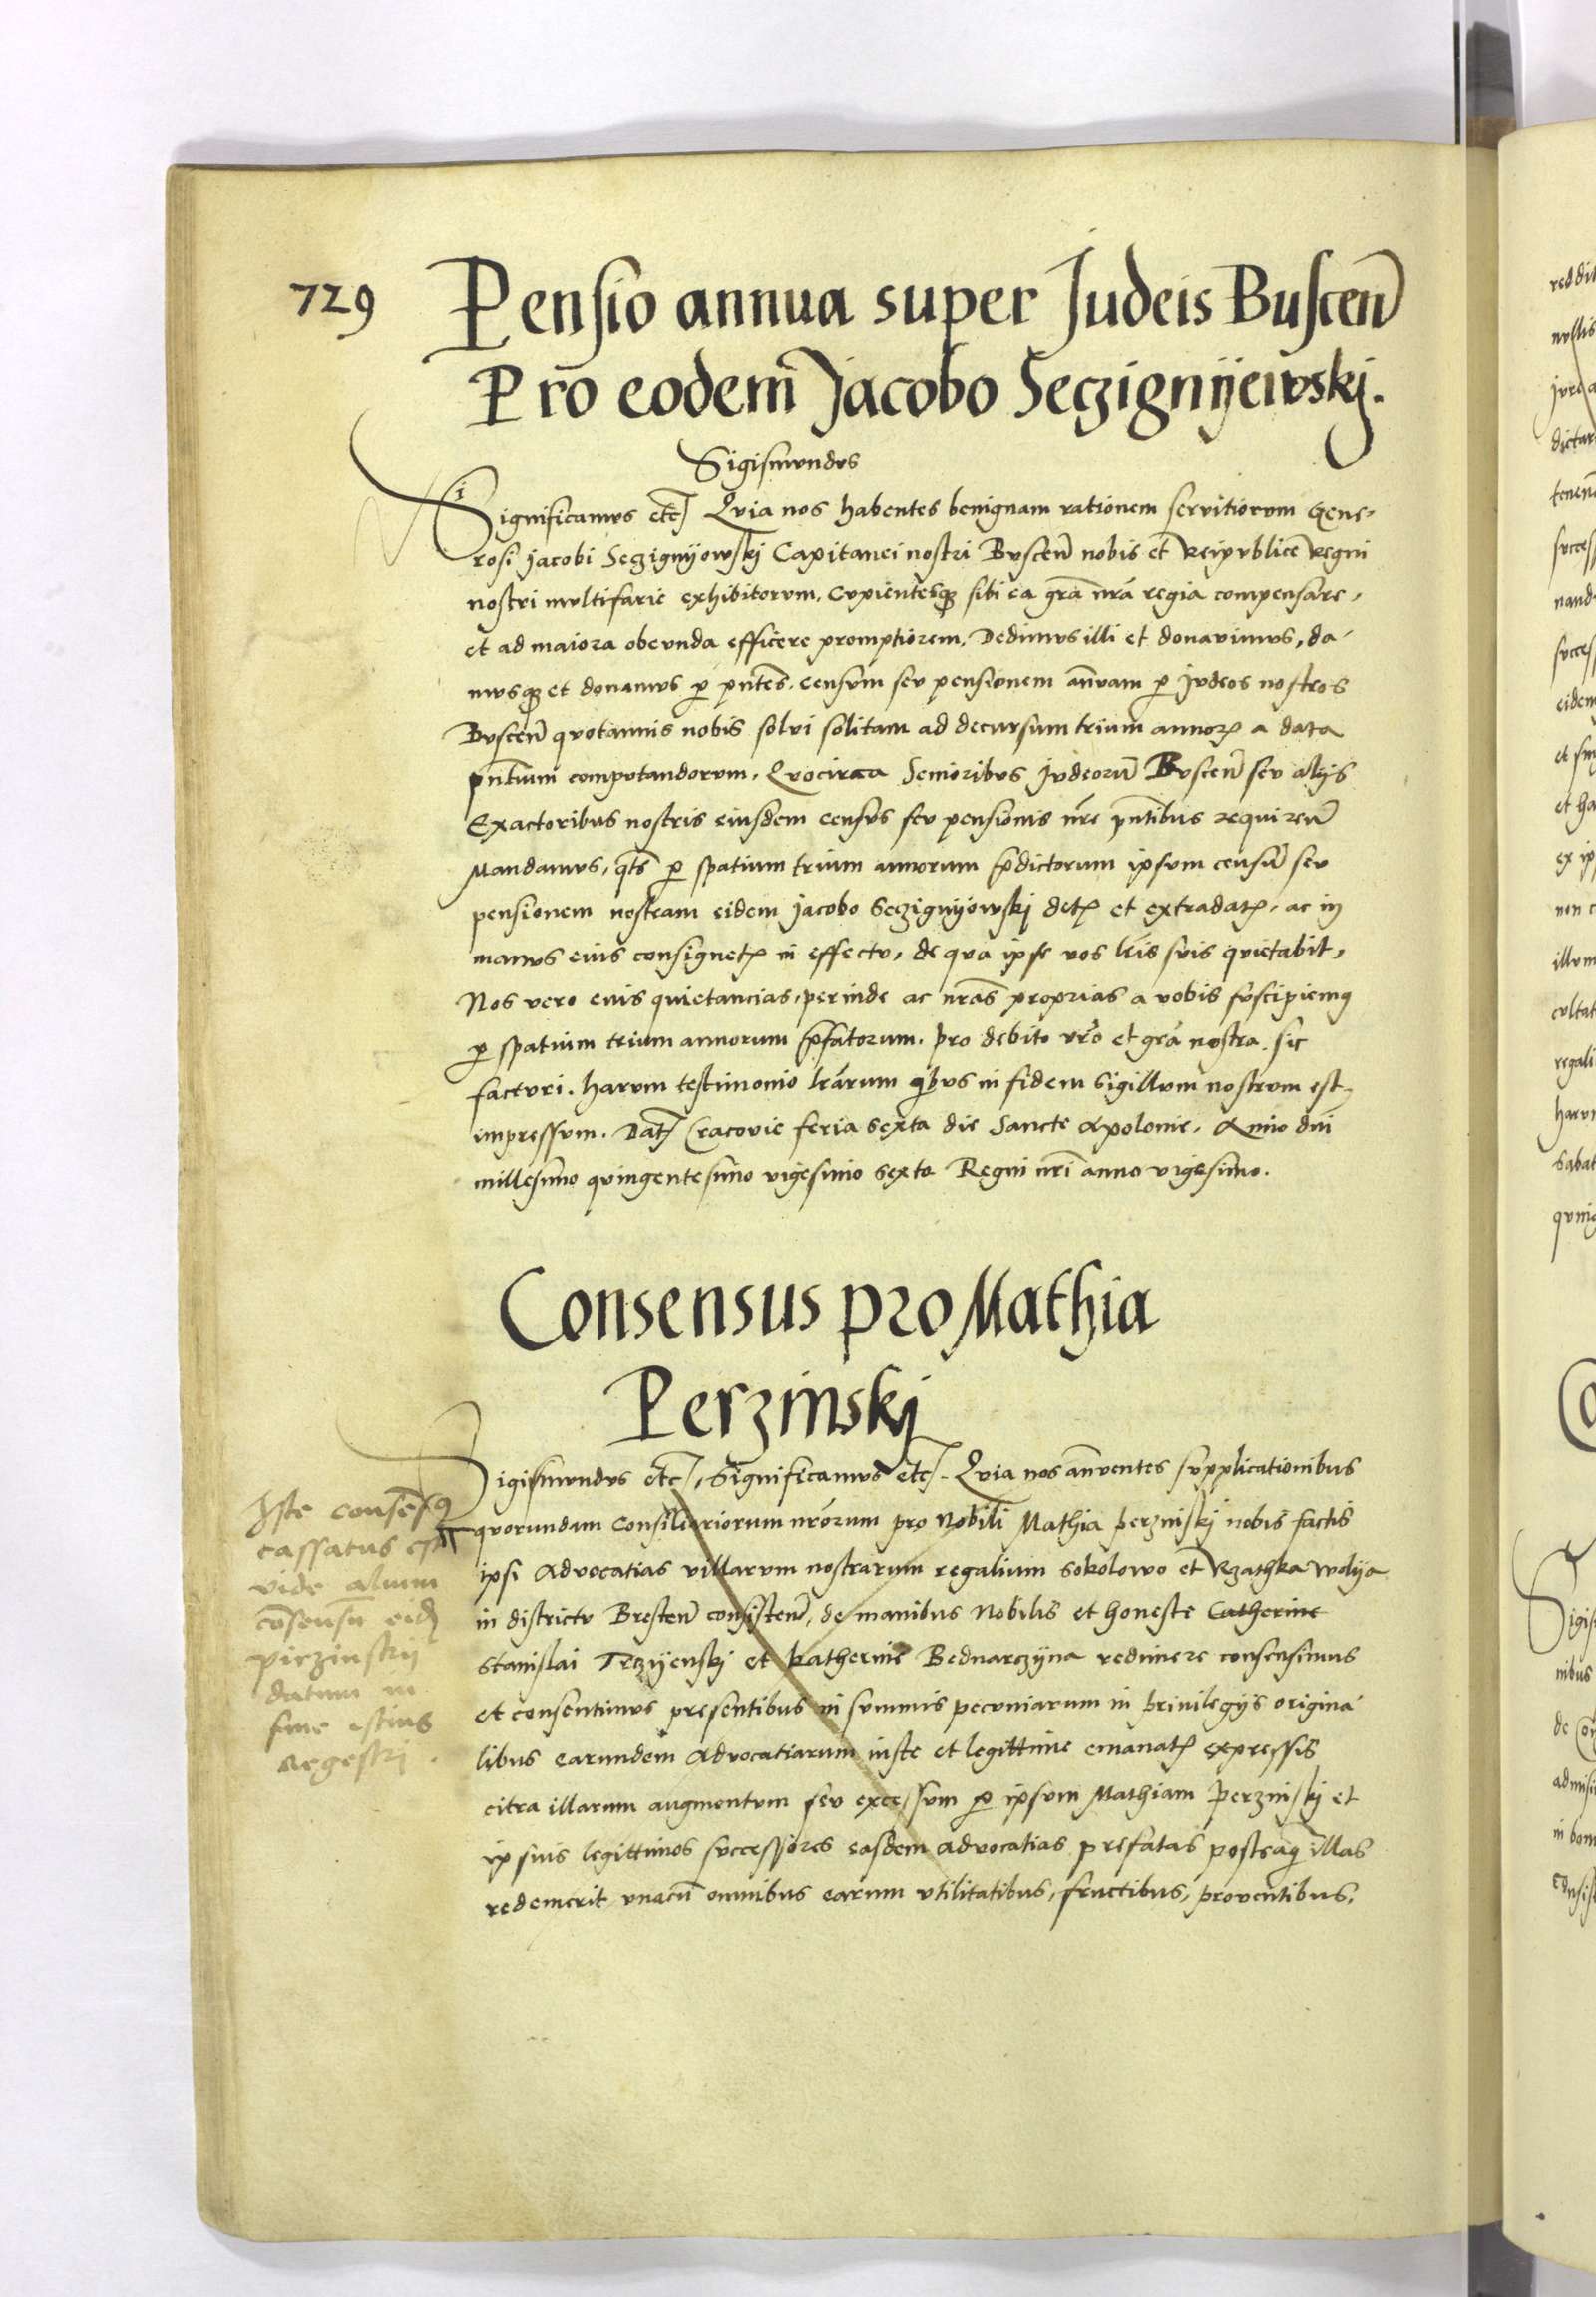 729
Pensio annua super Judeis Buscen̄
Pro eodem Jacobo Seczignijewskj.
Sigismundus
Significamus etc̄ Quia nos habentes benignam rationem servitiorum Gene-
rosi Jacobi Seczignijowskj Capitanei nostri Buscen̄ nobis et Reipublice Regni
nostri multifarie exhibitorum, Cupientesq₃ sibi ea gr̄a nr̄a regia compensare,
et ad maiora obeunda efficere promptiorem, Dedimus illi et donavimus, da-
musq₃ et donamus ꝑ pn̄tes, censum seu pensionem an̄uam ꝑ Judeos nostros
Buscen̄ quotannis nobis solui solitam ad decursum trium annoꝝ a data
pn̄tium computandorum, Quocirca Senioribus Judeorū Buscen̄ seu alijs
Exactoribus nostris eiusdem census seu pensionis nr̄e pn̄tibus requiren̄
Mandamus, qt̄s ꝑ spatium trium annorum p̄dictorum ipsum censū seu
pensionem nostram eidem Jacobo Seczignijowskj detꝭ et extradatꝭ, ac in
manus eius consignetꝭ in effectu, de qua ipse vos lr̄is suis quietabit,
Nos vero euis quietancias, perinde ac nr̄as proprias a vobis suscipiemꝯ
ꝑ spatium trium annorum p̄fatorum. Pro debito vr̄o et gr̄a nostra sic
facturi. harum testimonio lr̄arum qb̄us in fidem Sigillum nostrum est
impressum. Dat̄ Cracovie feria sexta die Sancte Apolonie, Anno dn̄i
millesimo quingentesimo vigesimo sexto Regni nr̄i anno vigesimo.
Consensus pro Mathia
Perzinskj
Sigismundus etc̄, Significamus etc̄. Quia nos an̄uentes supplicationibus
quorundam Consiliariorum nr̄orum pro Nobili Mathia perzinskj nobis factis
ipsi Advocatias villarum nostrarum regalium Sokolowo et Rzathka wolya
in districtu Bresten̄ consisten̄, de manibus Nobilis et honeste Catherine
Stanislai Trzijenskj et Katherine Bednarczyna redimere consensimus
et consentimus presentibus in summis pecuniarum in privilegijs origina-
libus earundem Advocatiarum iuste et legittime emanatꝭ expressis
citra illarum augmentum seu excessum ꝑ ipsum Mathiam Perzinskj et
ipsius legittimos successores easdem advocatias prefatas posteaq̄ illas
redemerit unacū omnibus earum utilitatibus, fructibus, proventibus,
Iste consēsꝯ
cassatus est
vide alium
cōsensū eidē
pierzinskij
datum in
fine istius
Regestri.